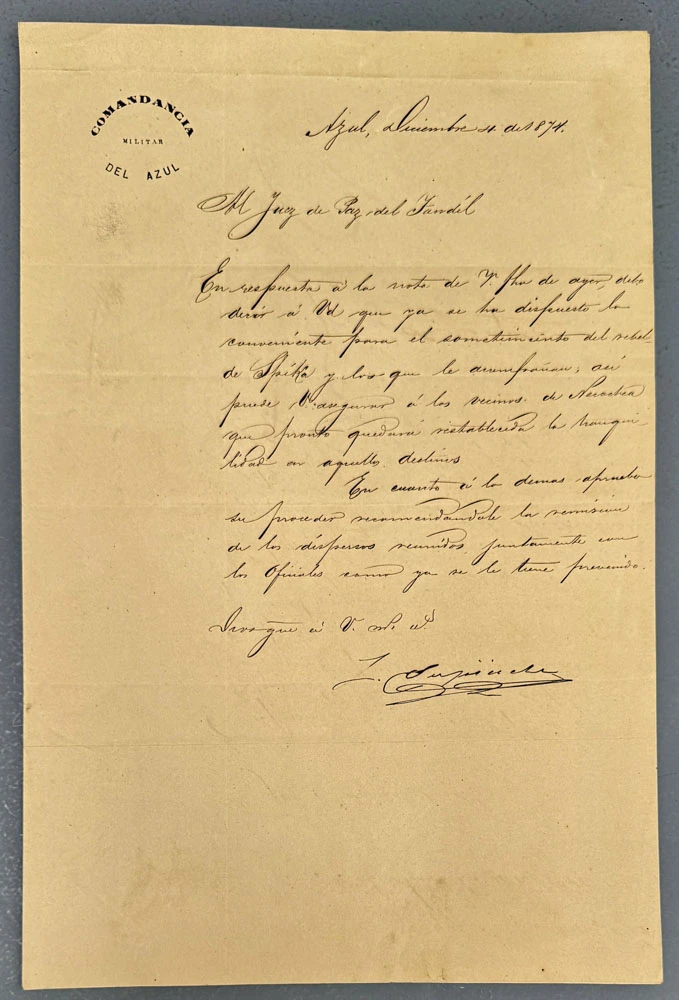 COMANDANCIA
MILITAR
DEL AZUL
Azul, Diciembre 4 de 1874.
Al Juez de Paz del Tandil
En respuesta á la nota de V. fha de ayer, debo
decir á Vd que ya se ha dispuesto lo
conveniente para el sometimiento del rebel-
de Spika y los que le acompañan; así
puede V. asegurar á los vecinos de Necochea
que pronto quedará restablecida la tranqui-
lidad en aquellos destinos
En cuanto á lo demas apruebo
su proceder recomendandole la remision
de los dispersos reunidos, juntamente con
los Oficiales como ya se le tiene prevenido.
Dios gue á V. m. a.s